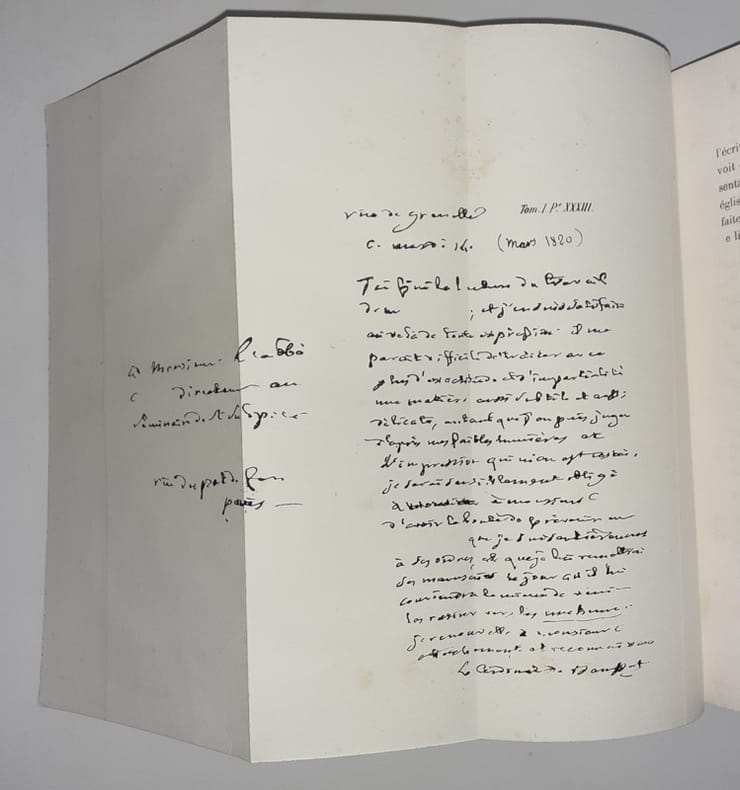 rue de grenelle
Tom. I. Pe. XXXIII.
C. mardi 14. (Mars 1820)
J'ai fini la lecture du travail
de mr ; et j'en suis satisfait
au delà de toute expression. il me
parait difficile de traiter avec
plus d'exactitude et d'impartialité
une matière aussi subtile et aussi
délicate, autant que j'en puis juger
d'après mes faibles lumières et
l'impression qui m'en est restée.
je serai sensiblement obligé
à monsieur C
d'avoir la bonté de prévenir mr
que je suis entièrement
à ses ordres, et que je lui remettrai
ses manuscrits le jour où il lui
conviendra de venir
les
je renouvelle à monsieur C
attachement et reconnaissance
Le Cardinal de Bausset
à Monsieur L'abbé
C directeur au
Séminaire de St Sulpice
rue du pot de fer
paris
l'écri
voit
senta
église
faite
e li